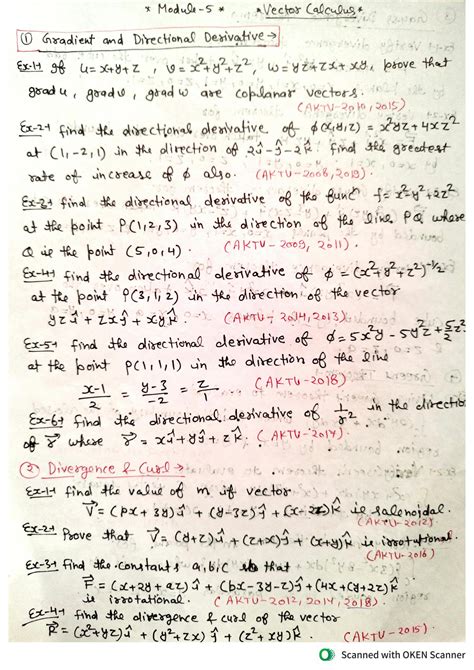 * Module-5 * *Vector Calculus*
① Gradient and Directional Derivative→
Ex-1→ If u=x+y+z , v=x²+y²+z² , w=yz+zx+xy, prove that
grad u, grad v, grad w are coplanar vectors.
(AKTU-2010,2015)
Ex-2→ find the directional derivative of ϕ(x,y,z) = x²yz+4xz²
at (1,-2,1) in the direction of 2î-ĵ-2k̂. find the greatest
rate of increase of ϕ also. (AKTU-2008,2019)
Ex-3→ find the directional derivative of the funcⁿ f=x²-y²+2z²
at the point P(1,2,3) in the direction of the line PQ where
Q is the point (5,0,4). (AKTU-2009, 2011).
Ex-4→ find the directional derivative of ϕ=(x²+y²+z²)^-1/2
at the point P(3,1,2) in the direction of the vector
yzî+zxĵ+xyk̂. (AKTU-2014,2013)
Ex-5→ find the directional derivative of ϕ=5x²y-5y²z+5/2z²
at the point P(1,1,1) in the direction of the line
x-1/2 = y-3/-2 = z/1 (AKTU-2018)
Ex-6→ find the directional derivative of 1/r² in the direction
of r⃗ where r⃗ = xî+yĵ+zk̂. (AKTU-2014).
② Divergence & Curl→
Ex-1→ find the value of m if vector
V⃗=(x+3y)î+(y-3z)ĵ+(x-z)k̂ is salenoidal.
(AKTU-2012)
Ex-2→ Prove that V⃗=(y+z)î+(z+x)ĵ+(x+y)k̂ is irrotational.
(AKTU-2016)
Ex-3→ find the constants a,b,c so that
F⃗=(x+2y+az)î+(bx-3y-z)ĵ+(4x+cy+2z)k̂
is irrotational. (AKTU-2012, 2014, 2018)
Ex-4→ find the divergence & curl of the vector
R⃗=(x²+yz)î+(y²+zx)ĵ+(z²+xy)k̂. (AKTU-2015).
Scanned with OKEN Scanner